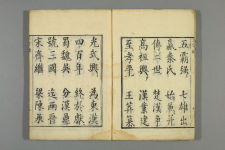 五霸强 七雄出
嬴秦氏 始兼并
傳二世 楚漢爭
高祖興 漢業建
至孝平 王莽篡
光武興 為東漢
四百年 終於獻
蜀魏吳 分漢鼎
號三國 迄兩晉
宋齊繼 梁陳承